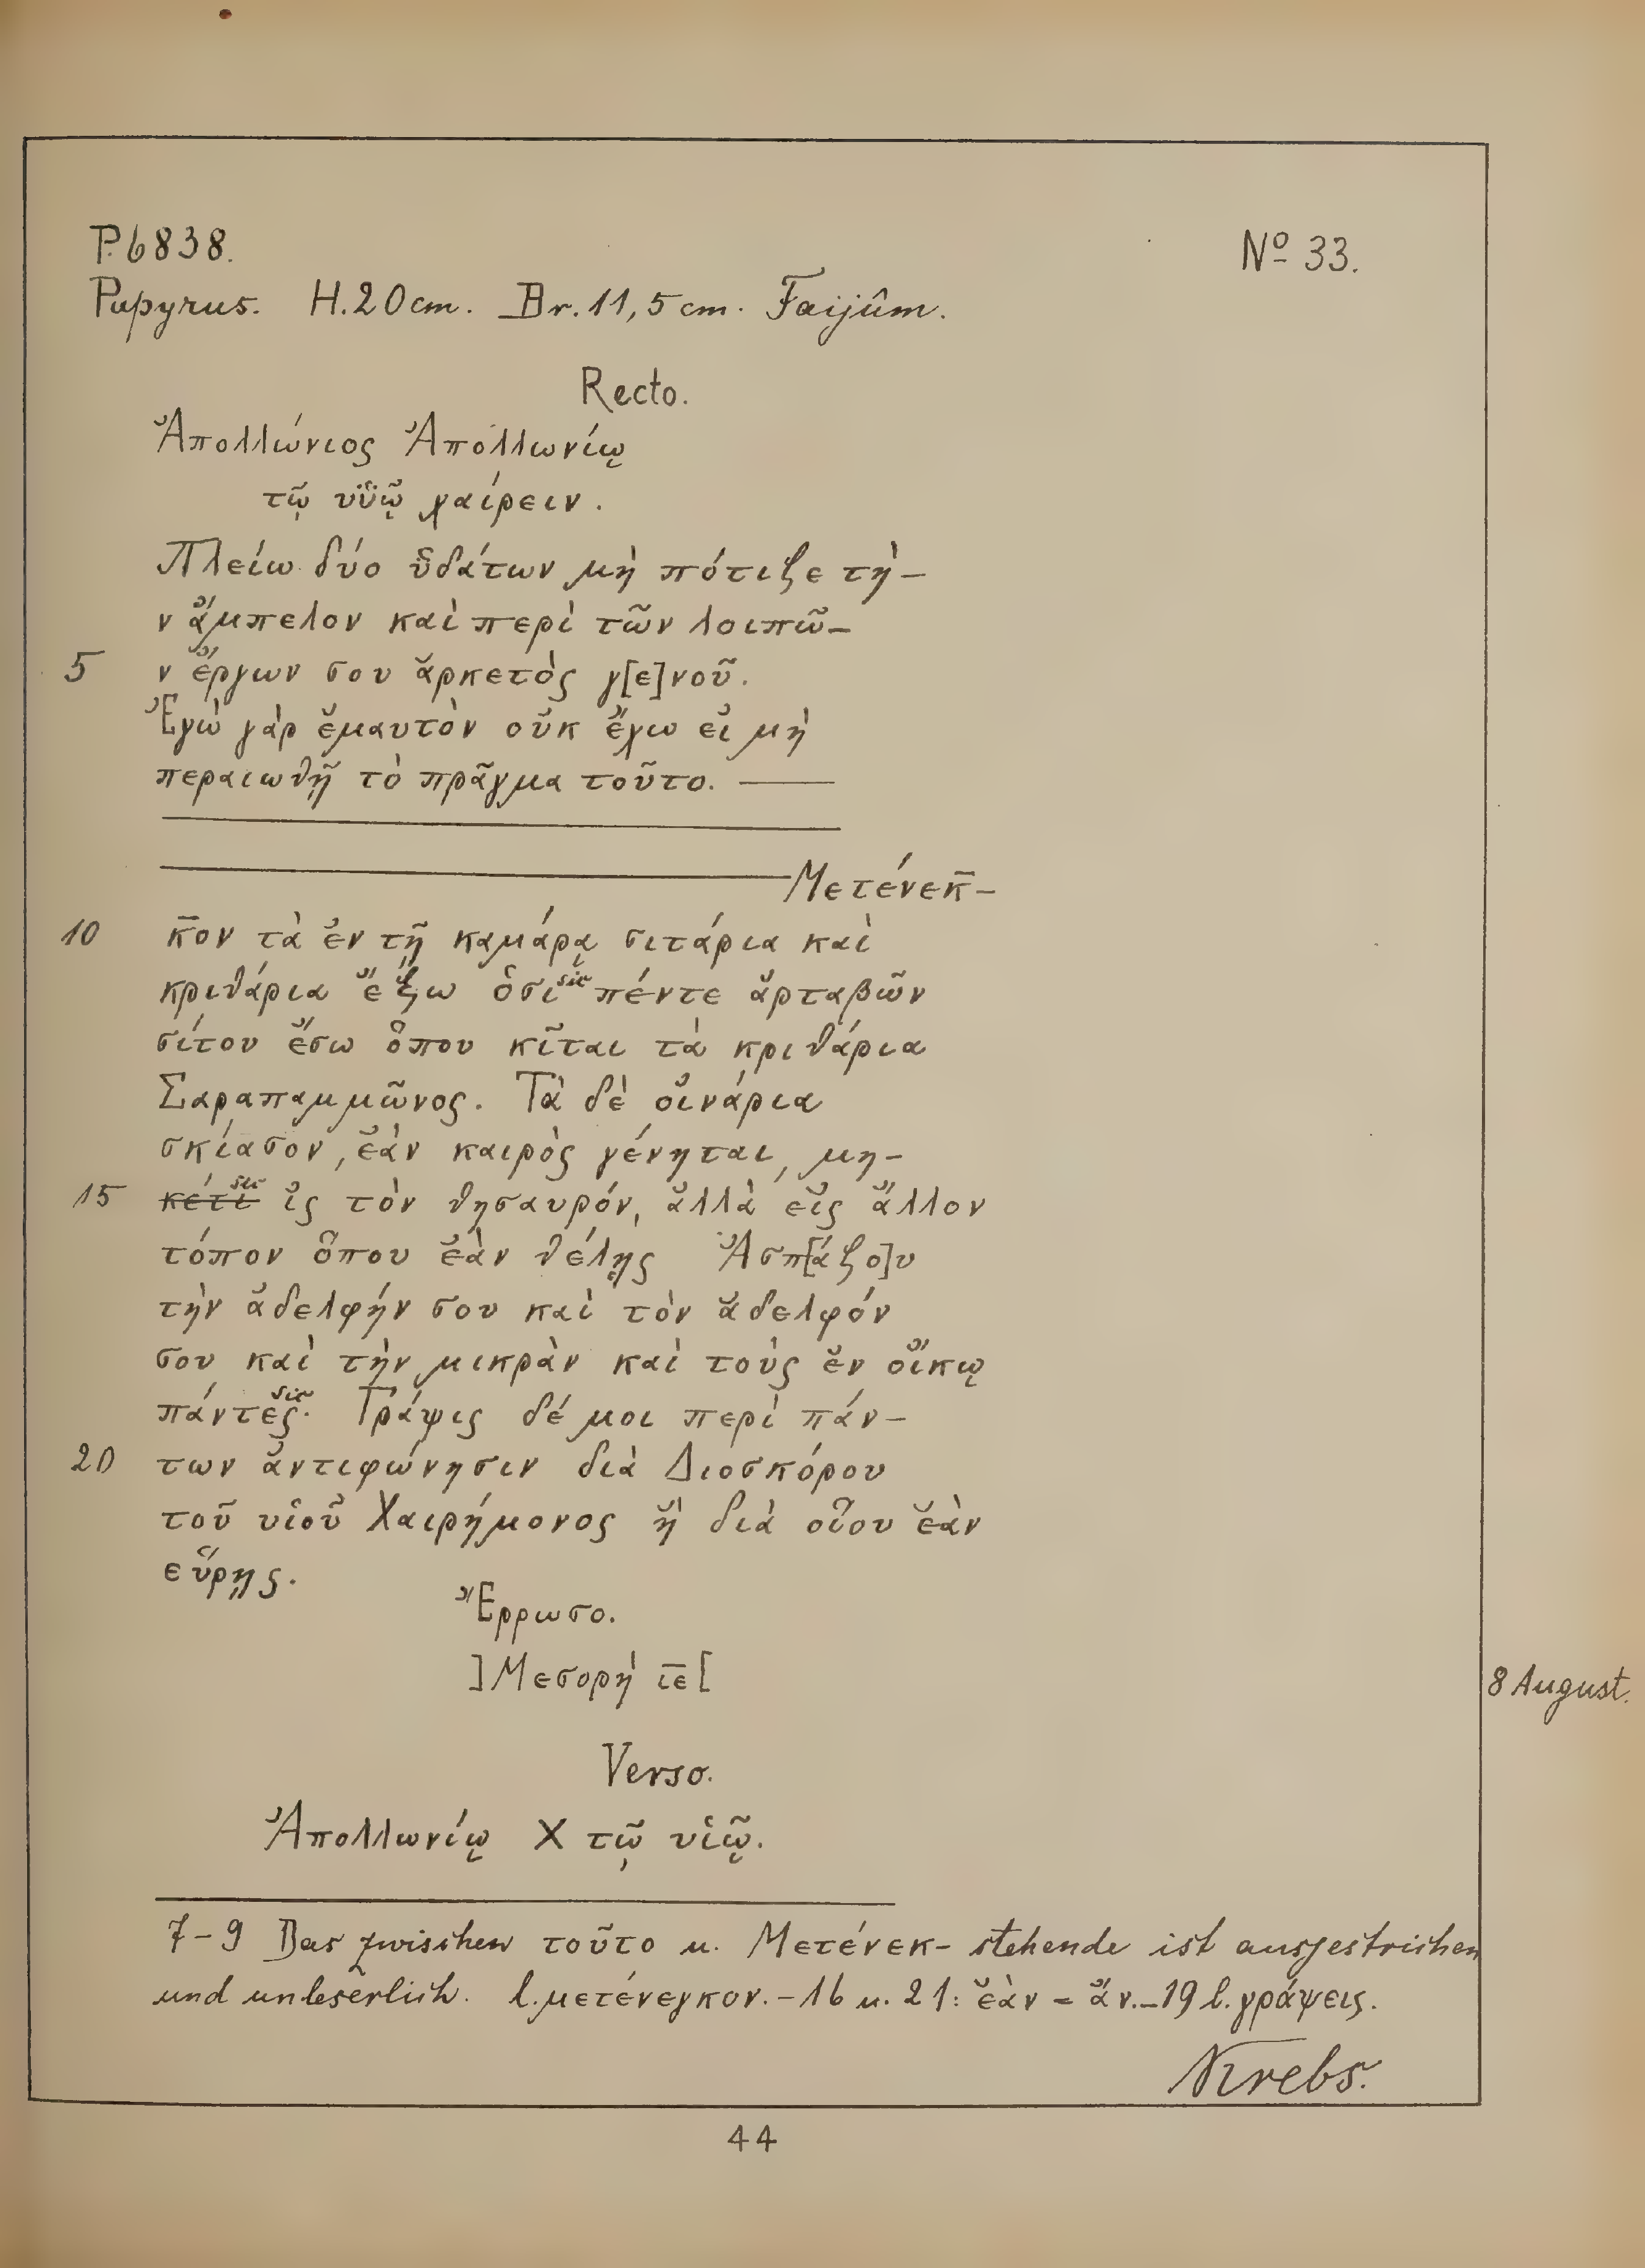 P. 6838. Nº 33.
Papyrus. H. 20 cm. Br. 11,5 cm. Faijûm.
Recto.
Ἀπολλώνιος Ἀπολλωνίῳ
τῷ υἱ̈ῷ χαίρειν.
Πλείω δύο ὑ̈δάτων μὴ πότιζε τὴ-
ν ἄμπελον καὶ περὶ τῶν λοιπῶ-
5 ν ἔργων σου ἀρκετὸς γ[ε]νοῦ.
Ἐγὼ γὰρ ἐμαυτὸν οὐκ ἔχω εἰ μὴ
περαιωθῇ τὸ πρᾶγμα τοῦτο. —
Μετένεκ̅-
10 κ̅ον τὰ ἐν τῇ καμάρᾳ σιτάρια καὶ
κριθάρια ἔξω ὁσὶ sic πέντε ἀρταβῶν
σίτου ἔσω ὅπου κῖται τὰ κριθάρια
Σαραπαμμῶνος. Τὰ δὲ οἰνάρια
σκίασον, ἐὰν καιρὸς γένηται, μη-
15 κέτι sic ἰς τὸν θησαυρόν, ἀλλὰ εἰς ἄλλον
τόπον ὅπου ἐὰν θέλῃς Ἀσπ[άζο]υ
τὴν ἀδελφήν σου καὶ τὸν ἀδελφόν
σου καὶ τὴν μικρὰν καὶ τοὺς ἐν οἴκῳ
πάντες sic. Γράψις δέ μοι περὶ πάν-
20 των ἀντιφώνησιν διὰ Διοσκόρου
τοῦ υἱοῦ Χαιρήμονος ἢ διὰ οἵου ἐὰν
εὕρῃς.
Ἔρρωσο.
]Μεσορὴ ι̅ε̅[ 8 August.
Verso.
Ἀπολλωνίῳ X τῷ υἱῷ.
7-9 Das zwischen τοῦτο u. Μετένεκ- stehende ist ausgestrichen
und unleserlich. l. μετένεγκον. - 16 u. 21: ἐὰν = ἄν. - 19 l. γράψεις.
Krebs.
44